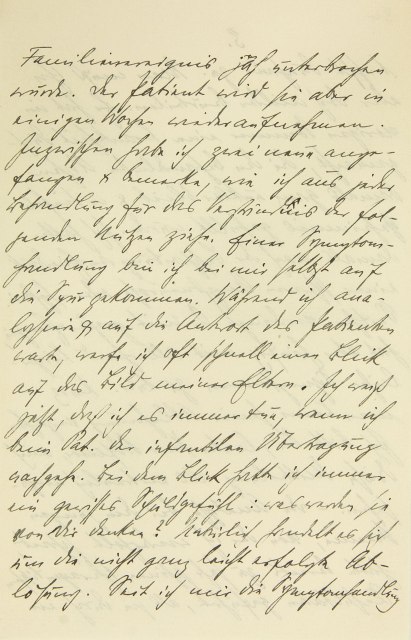 Familienereignis jäh unterbrochen
wurde. Der Patient wird sie aber in
einigen Wochen wiederaufnehmen.
Inzwischen habe ich zwei neue ange-
fangen & bemerke, wie ich aus jeder
Behandlung für das Verständnis der fol-
genden Nutzen ziehe. Einer Symptom-
handlung bin ich bei mir selbst auf
die Spur gekommen. Während ich ana-
lysiere & auf die Antwort des Patienten
warte, werfe ich oft schnell einen Blick
auf das Bild meiner Eltern. Ich weiß
jetzt, daß ich es immer tue, wenn ich
beim Pat. der infantilen Übertragung
nachgehe. Bei dem Blick hatte ich immer
ein gewisses Schuldgefühl: was werden sie
von dir denken? Natürlich handelt es sich
um die nicht ganz leicht erfolgte Ab-
lösung. Seit ich mir die Symptomhandlung